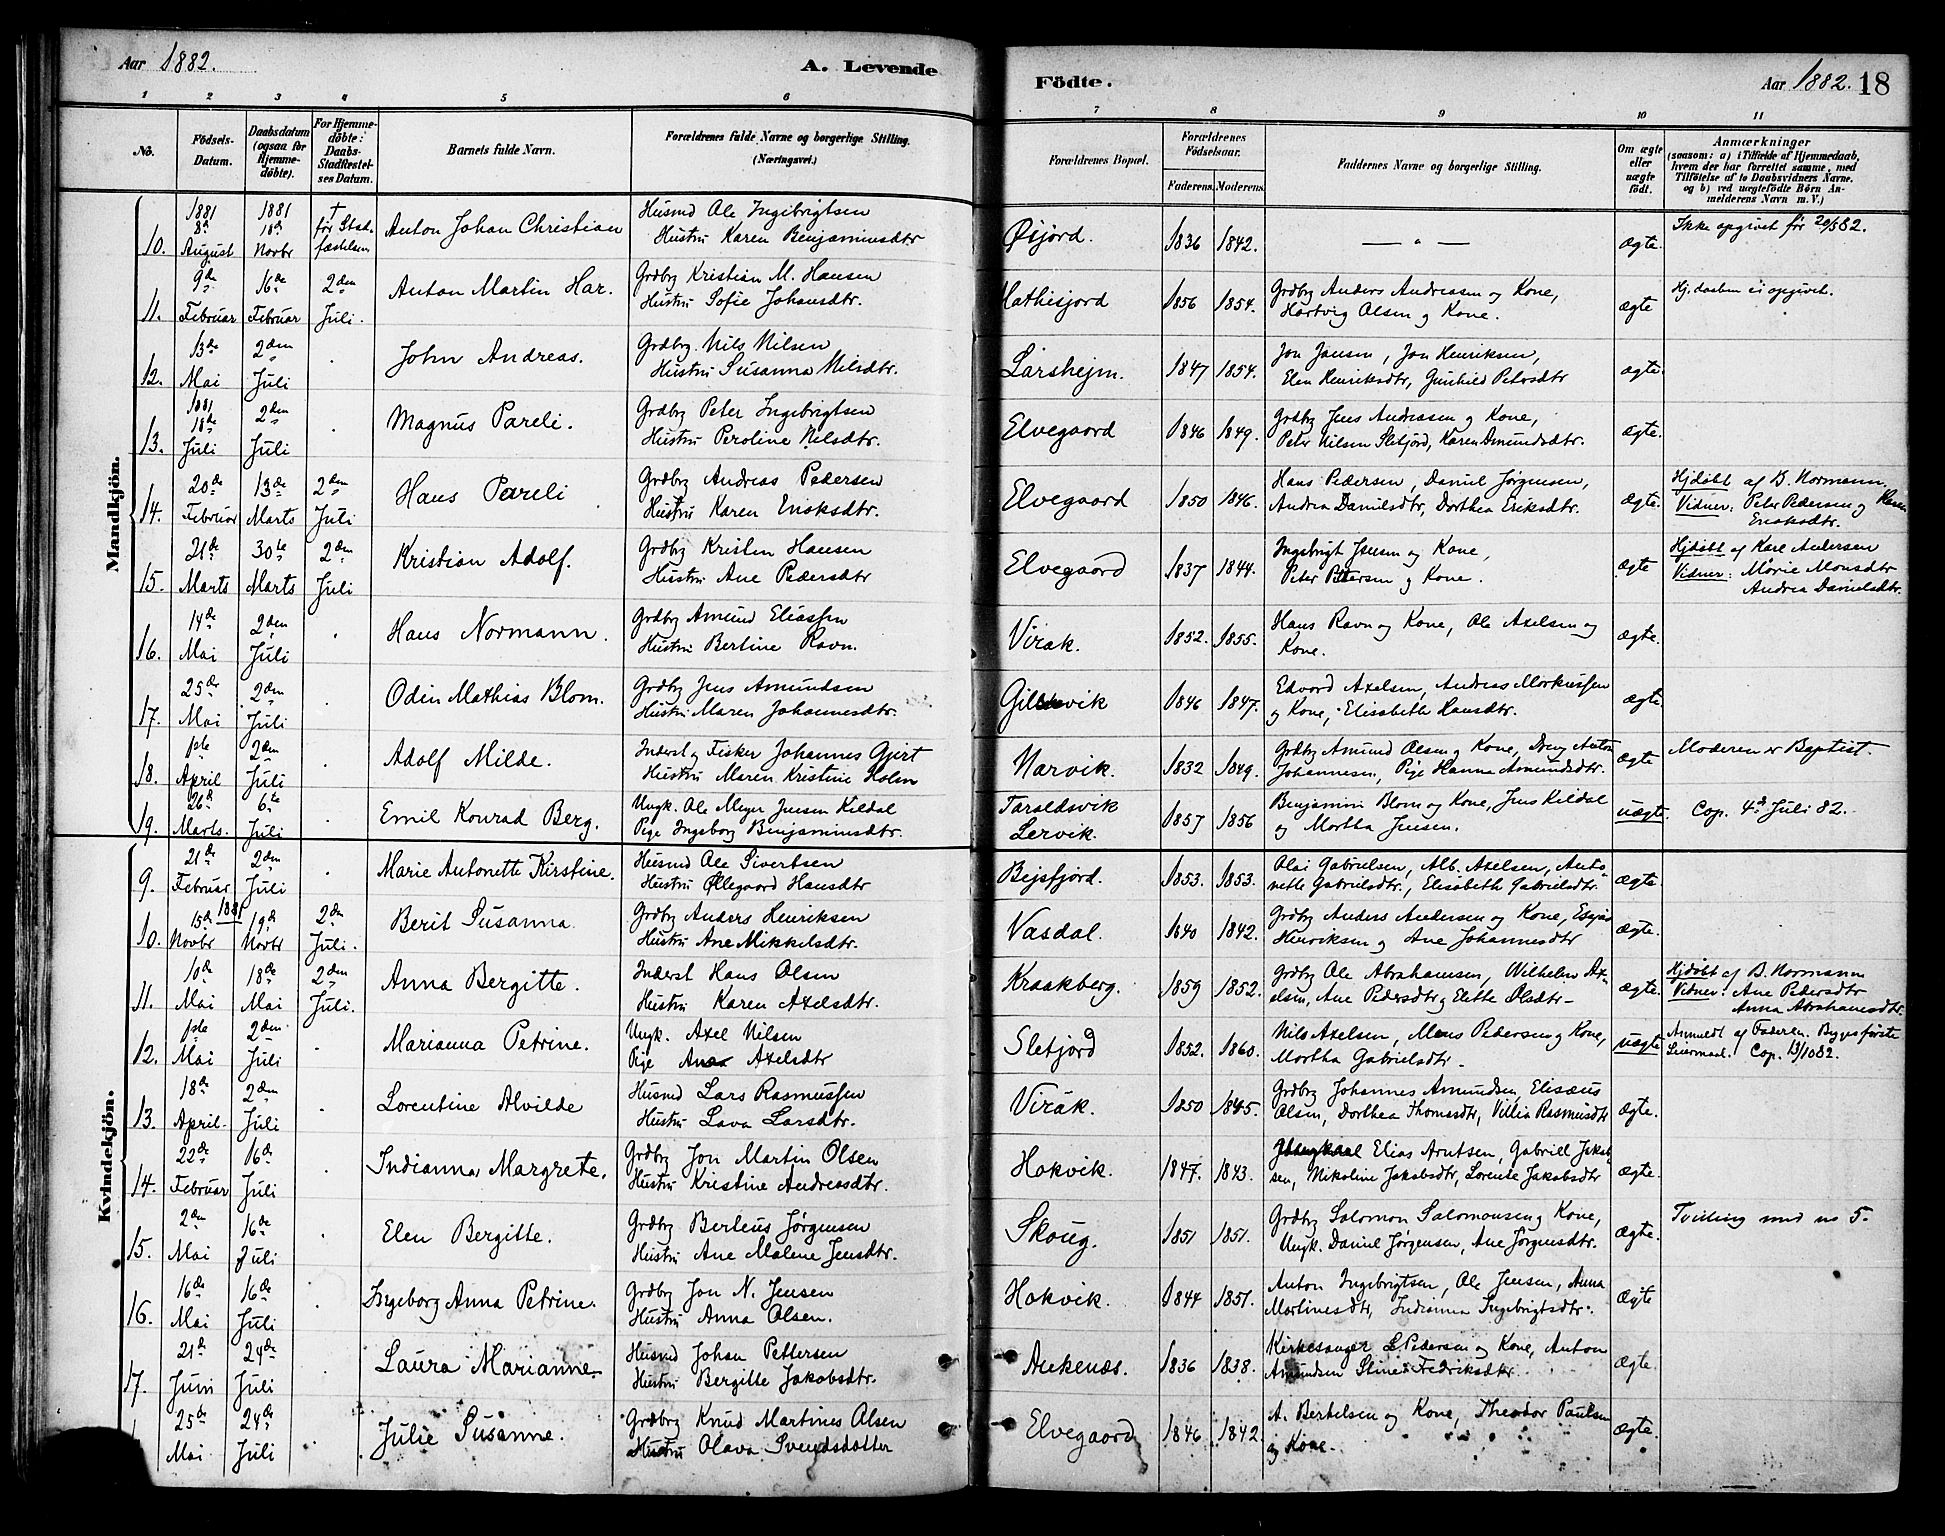 Aar 1882.
A. Levende
Födte.
Aar 1882. 18
1 2 3 4 5 6 7 8 9 10 11
No.
Födsels-Datum.
Daabsdatum (ogsaa for Hjemme-döbte).
For Hjemme-döbte: Daabs-Stadfæstelses Datum.
Barnets fulde Navn.
Forældrenes fulde Navne og borgerlige Stilling. (Næringsvei.)
Forældrenes Bopæl.
Forældrenes Födselsaar.
Faderens. Moderens.
Faddernes Navne og borgerlige Stilling.
Om ægte eller uægte födt.
Anmærkninger
(saasom: a) i Tilfælde af Hjemmedaab, hvem der har forrettet samme, med Tilföielse af to Daabsvidners Navne. og b) ved uægtefödte Börn Anmelderens Navn m. V.)
Mandkjön.
10. 1881 8de August 1881 18de Novbr † før Stadfæstelsen Anton Johan Christian Husmd Ole Ingebrigtsen Hustru Karen Benjaminsdtr Øijord. 1836 1842. — " — ægte. Ikke opgivet før 20/5 82.
11. 9de Februar 16de Februar 2den Juli. Anton Martin Har. Grdbr Kristian M. Hansen Hustru Sofie Johansdtr. Mathisjord 1856 1854. Grdbr Anders Andreasen og Kone, Hartvig Olsen og Kone. ægte Hj. daaben ei opgivet.
12. 13de Mai 2den Juli John Andreas. Grdbr. Nils Nilsen Hustru Susanna Nilsdtr. Larshejm. 1847 1854. Jon Jonsen, Jon Henriksen, Elen Henriksdtr, Gunhild Petersdtr ægte.
13. 1881 18de Juli 2den Juli Magnus Pareli. Grdbr Peter Ingebrigtsen Hustru Peroline Nilsdtr. Elvegaard 1846 1849. Grdbr Jens Andreasen og Kone, Peter Nilsen Sletjord, Karen Amundsdtr. ægte.
14. 20de Februar 13de Marts 2den Juli Hans Pareli Grdbr Andreas Pedersen Hustru Karen Enoksdtr. Elvegaard 1850 1846. Hans Pedersen, Daniel Jørgensen, Andrea Danielsdtr, Dorthea Eriksdtr. ægte. Hjdøbt af B. Normann. Vidner: Peter Pedersen og Karen Enoksdtr.
15. 21de Marts 30te Marts 2den Juli Kristian Adolf. Grdbr Kristen Hansen Hustru Ane Pedersdtr Elvegaard 1837 1844. Ingebrigt Jensen og Kone, Peter Pettersen og Kone. ægte Hjdøbt af Karl Andersen Vidner: Marie Monsdtr Andrea Danielsdtr.
16. 14de Mai 2den Juli Hans Normann. Grdbr Amund Eliassen Hustru Bertine Ravn. Virak. 1852. 1855. Hans Ravn og Kone, Ole Axelsen og Kone. ægte.
17. 25de Mai 2den Juli Odin Mathias Blom. Grdbr Jens Amundsen Hustru Maren Johannesdtr. 1846 1847. Edvard Axelsen, Andreas Markussen og Kone, Elisabeth Hansdtr. ægte.
18. 1ste April 2den Juli Adolf Milde. Inderst og Fisker Johannes Gjert Hustru Maren Kristine Holm Narvik. 1832 1849. Grdbr Amund Olsen og Kone, Dreng Anton Johannesen, Pige Hanna Amundsdtr. ægte Moderen er Baptist.
19. 26de Marts. 6te Juli Emil Konrad Berg. Ungk. Ole Meyer Jensen Kildal Pige Ingeborg Benjaminsdtr. Taraldsvik Lervik. 1857 1856 Benjamin Blom og Kone, Jens Kildal og Martha Jensen. uægte. Cop. 4de Juli 82.
Kvindekjön.
9. 21de Februar 2den Juli Marie Antonette Kirstine. Husmd Ole Sivertsen Hustru Øllegaard Hansdtr Bejsfjord. 1853. 1853. Olai Gabrielsen, Alb. Axelsen, Antonette Gabrielsdtr., Elisabeth Gabrielsdtr. ægte.
10. 15de 1881 Novbr 19de Novbr 2den Juli. Berit Susanna. Grdbr Anders Henriksen Hustru Ane Mikkelsdtr. Vasdal. 1840 1842. Grdbr Anders Andersen og Kone, Henriksen og Ane Johannesdtr ægte.
11. 10de Mai 18de Mai 2den Juli. Anna Bergitte. Inderst Hans Olsen Hustru Karen Axelsdtr. Kraakberg. 1859 1852. Grdbr Ole Abrahamsen, Wilhelm Axelsen, Ane Pedersdtr og Elette Olsdtr. ægte. Hjdøbt af B. Normann Vidner: Ane Pedersdtr Anna Abrahamsdtr.
12. 1ste Mai 2den Juli Marianna Petrine. Ungk. Axel Nilsen Pige Axelsdtr Sletjord 1852. 1860. Nils Axelsen, Mons Pedersen og Kone, Martha Gabrielsdtr. uægte Anmeldt af Faderen. Begges første Leiermaal. Cop. 13/10 82.
13. 18de April. 2den Juli Lorentine Alvilde Husmd Lars Rasmussen Hustru Lava Larsdtr. Virak. 1850 1845. Grdbr Johannes Amundsen, Elisæus Olsen, Dorthea Thomasdtr, Villia Rasmusdtr ægte.
14. 22de Februar 16de Juli Indianna Margrete. Grdbr Jon Martin Olsen Hustru Kristine Andreasdtr. Hokvik. 1847. 1843. Elias Arntsen, Gabriel Jakobsen, Nikoline Jakobsdtr, Lorense Jakobsdtr ægte.
15. 2den Mai 16de Juli Elen Bergitte. Grdbr Berteus Jørgensen Hustru Ane Malene Jensdtr. Skoug. 1851 1851. Grdbr Salomon Salomonsen og Kone, Ungk. Daniel Jørgensen, Ane Jørgensdtr. ægte. Tvilling med no 5.
16. 16de Mai 16de Juli Ingeborg Anna Petrine. Grdbr Jon N. Jensen Hustru Anna Olsen. Hokvik. 1844 1851. Anton Ingebrigtsen, Ole Jensen, Anna Martinesdtr, Indianna Ingebrigtsdtr. ægte
17. 21de Juni 24de Juli Laura Marianne. Husmd Johan Pettersen Hustru Bergitte Jakobsdtr. Ankenæs. 1836 1838. Kirkesanger L. Pedersen og Kone, Anton Amundsen Stine Fredriksdtr. ægte.
25de Mai 24de Juli Julie Susanne. Grdbr Knud Martines Olsen Hustru Olava Svendsdatter Elvegaard 1846 1842. A. Bertelsen og Kone, Theodor Paulsen og Kone. ægte.